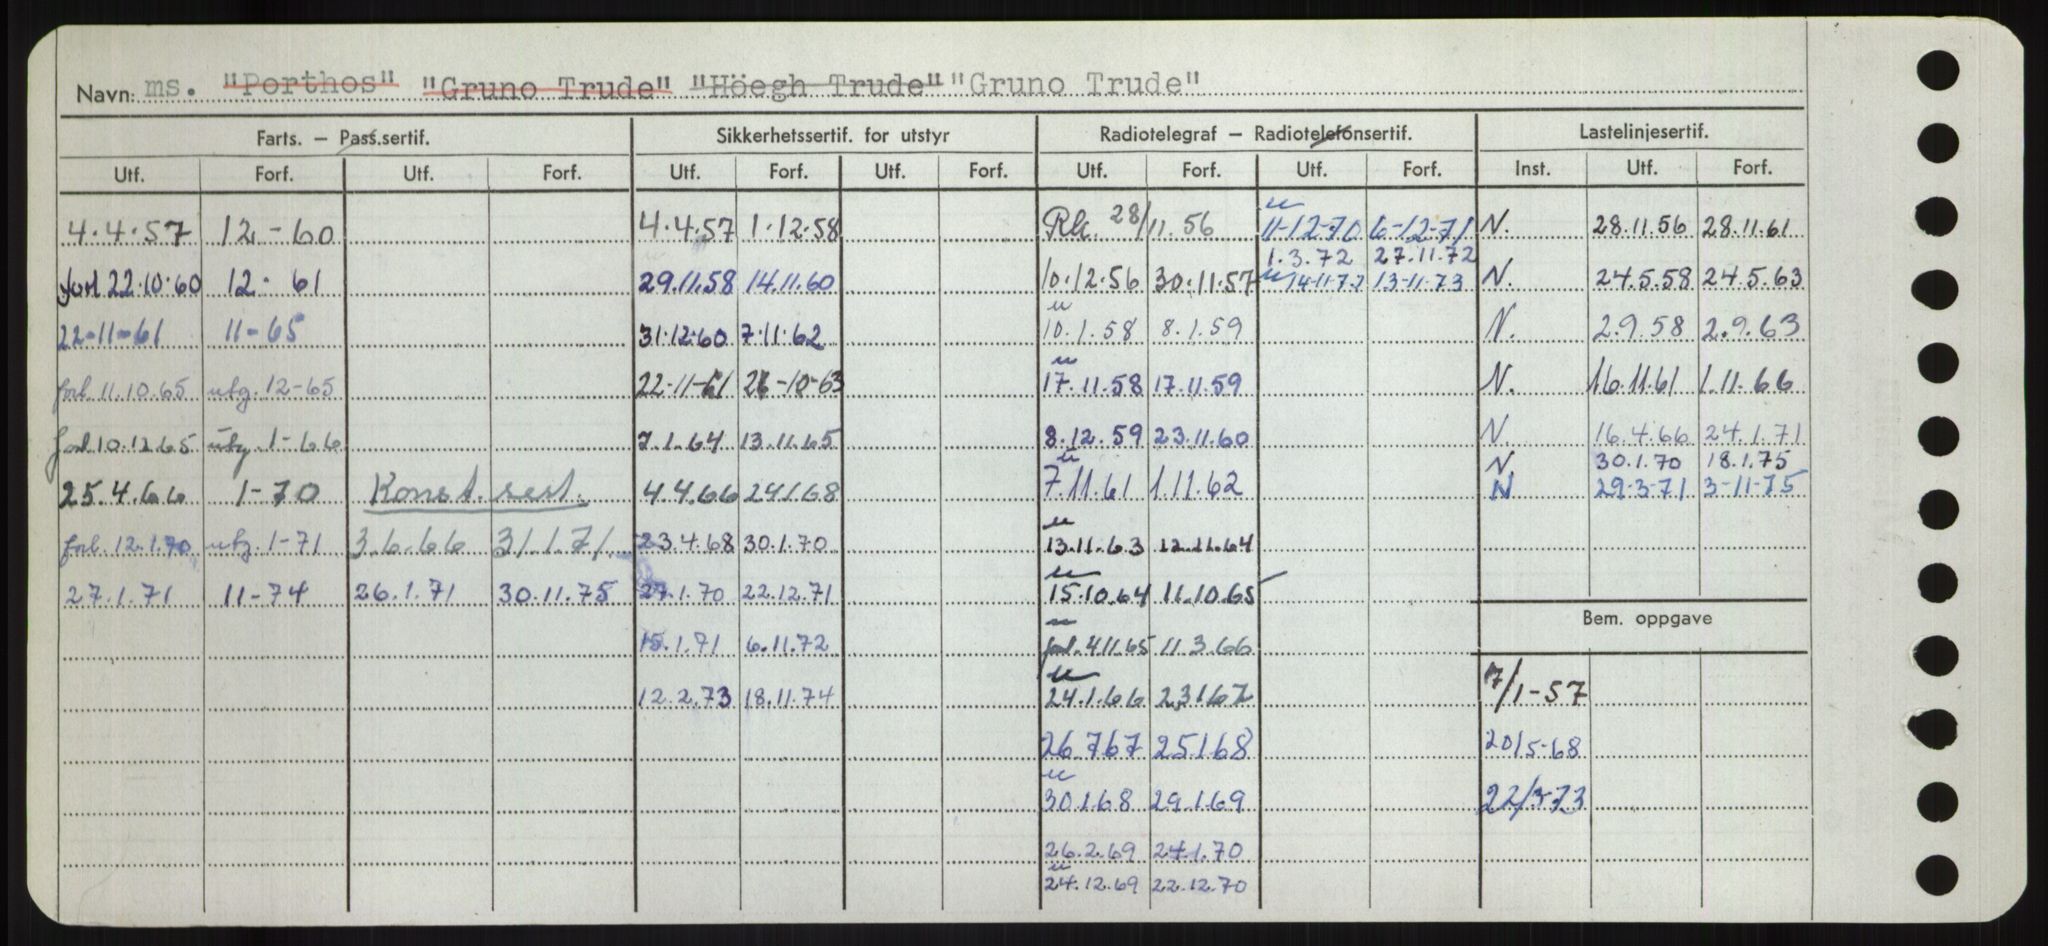 Navn: ms. "Porthos" "Gruno Trude" "Höegh Trude" "Gruno Trude"
Farts. — Pass.sertif. Sikkerhetssertif. for utstyr Radiotelegraf — Radiotelefonsertif. Lastelinjesertif.
Utf. Forf. Utf. Forf. Utf. Forf. Utf. Forf. Utf. Forf. Utf. Forf. Inst. Utf. Forf.
4.4.57 12-60 4.4.57 1.12.58 28/11.56 11-12-70 6-12-71 N. 28.11.56 28.11.61
1.3.72 27.11.72
forl 22.10.60 12-61 29.11.58 14.11.60 10.12.56 30.11.57 14-11-72 13-11-73 N. 24.5.58 24.5.63
22-11-61 11-65 31.12.60 7.11.62 10.1.58 8.1.59 N. 2.9.58 2.9.63
forl. 11.10.65 utg. 12-65 22-11-61 -10-63 17.11.58 17.11.59 N. 16.11.61 1.11.66
forl 10.12.65 utg. 1-66 7.1.64 13.11.65 8.12.59 23.11.60 N. 16.4.66 24.1.71
N. 30.1.70 18.1.75
25.4.66 1-70 Konst. sert. 4.4.66 24.1.68 7.11.61 1.11.62 N 29-3-71 3-11-75
forl. 12.1.70 utg. 1-71 3.6.66 31.1.71 23.4.68 30.1.70 13.11.63 12.11.64
27.1.71 11-74 26.1.71 30.11.75 27.1.70 22.12.71 15.10.64 11.10.65
Bem. oppgave
15.1.71 6.11.72 forl. 4.11.65 11.3.66
12.2.73 18.11.74 24.1.66 23.1.67 7/1-57
26.7.67 25.1.68 20/5-68
30.1.68 29.1.69 22/3-73
26.2.69 24.1.70
24.12.69 22.12.70